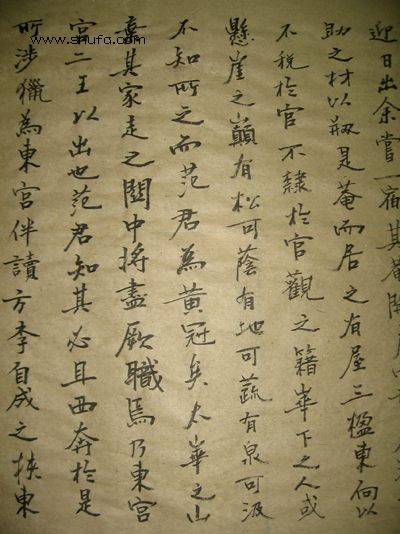 www.shufa.com
所涉獵為東宮伴讀方李自成之挾東
宮二王以出也范君知其必且西奔於是
棄其家走之關中將盡厥職焉乃東宮
不知所之而范君為黃冠矣太華之山
懸崖之巔有松可蔭有地可蔬有泉可汲
不稅於官不隸於官觀之籍華下之人或
助之材以剏是菴而居之有屋三楹東向以
迎日出余嘗一宿其菴開戶